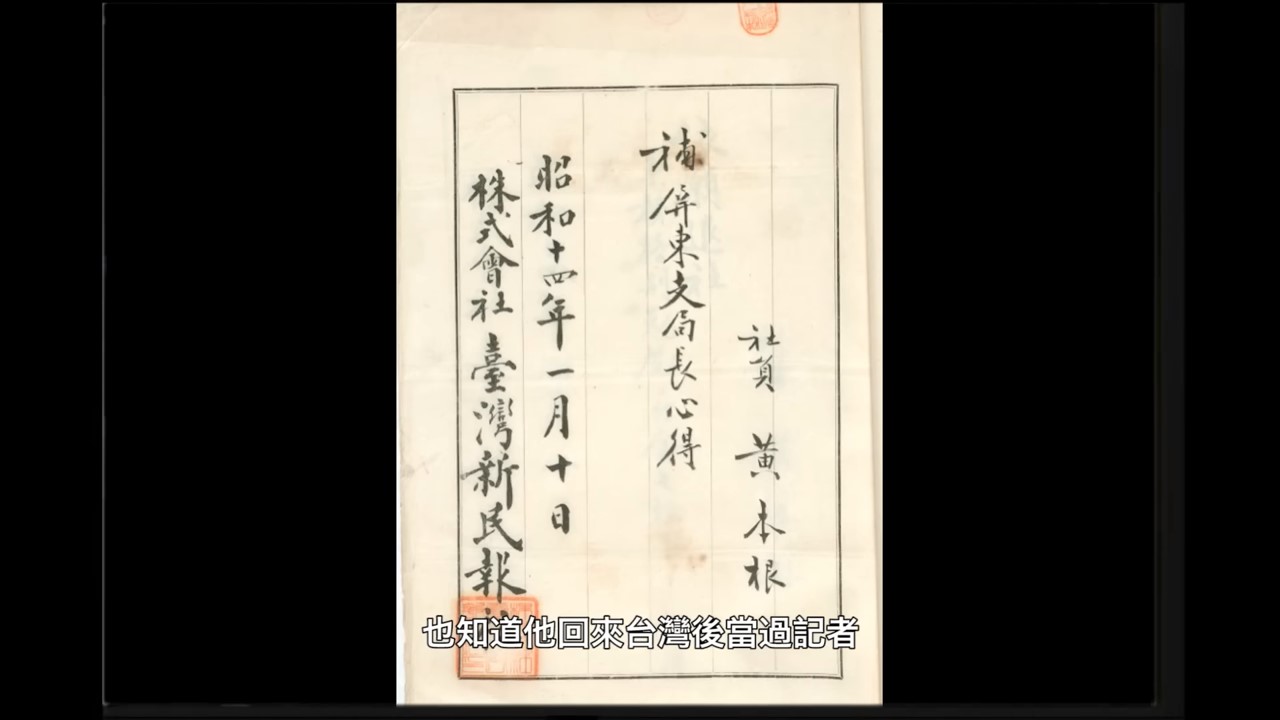 社員 黃本根
補屏東支局長心得
昭和十四年一月十日
株式會社臺灣新民報
也知道他回來台灣後當過記者